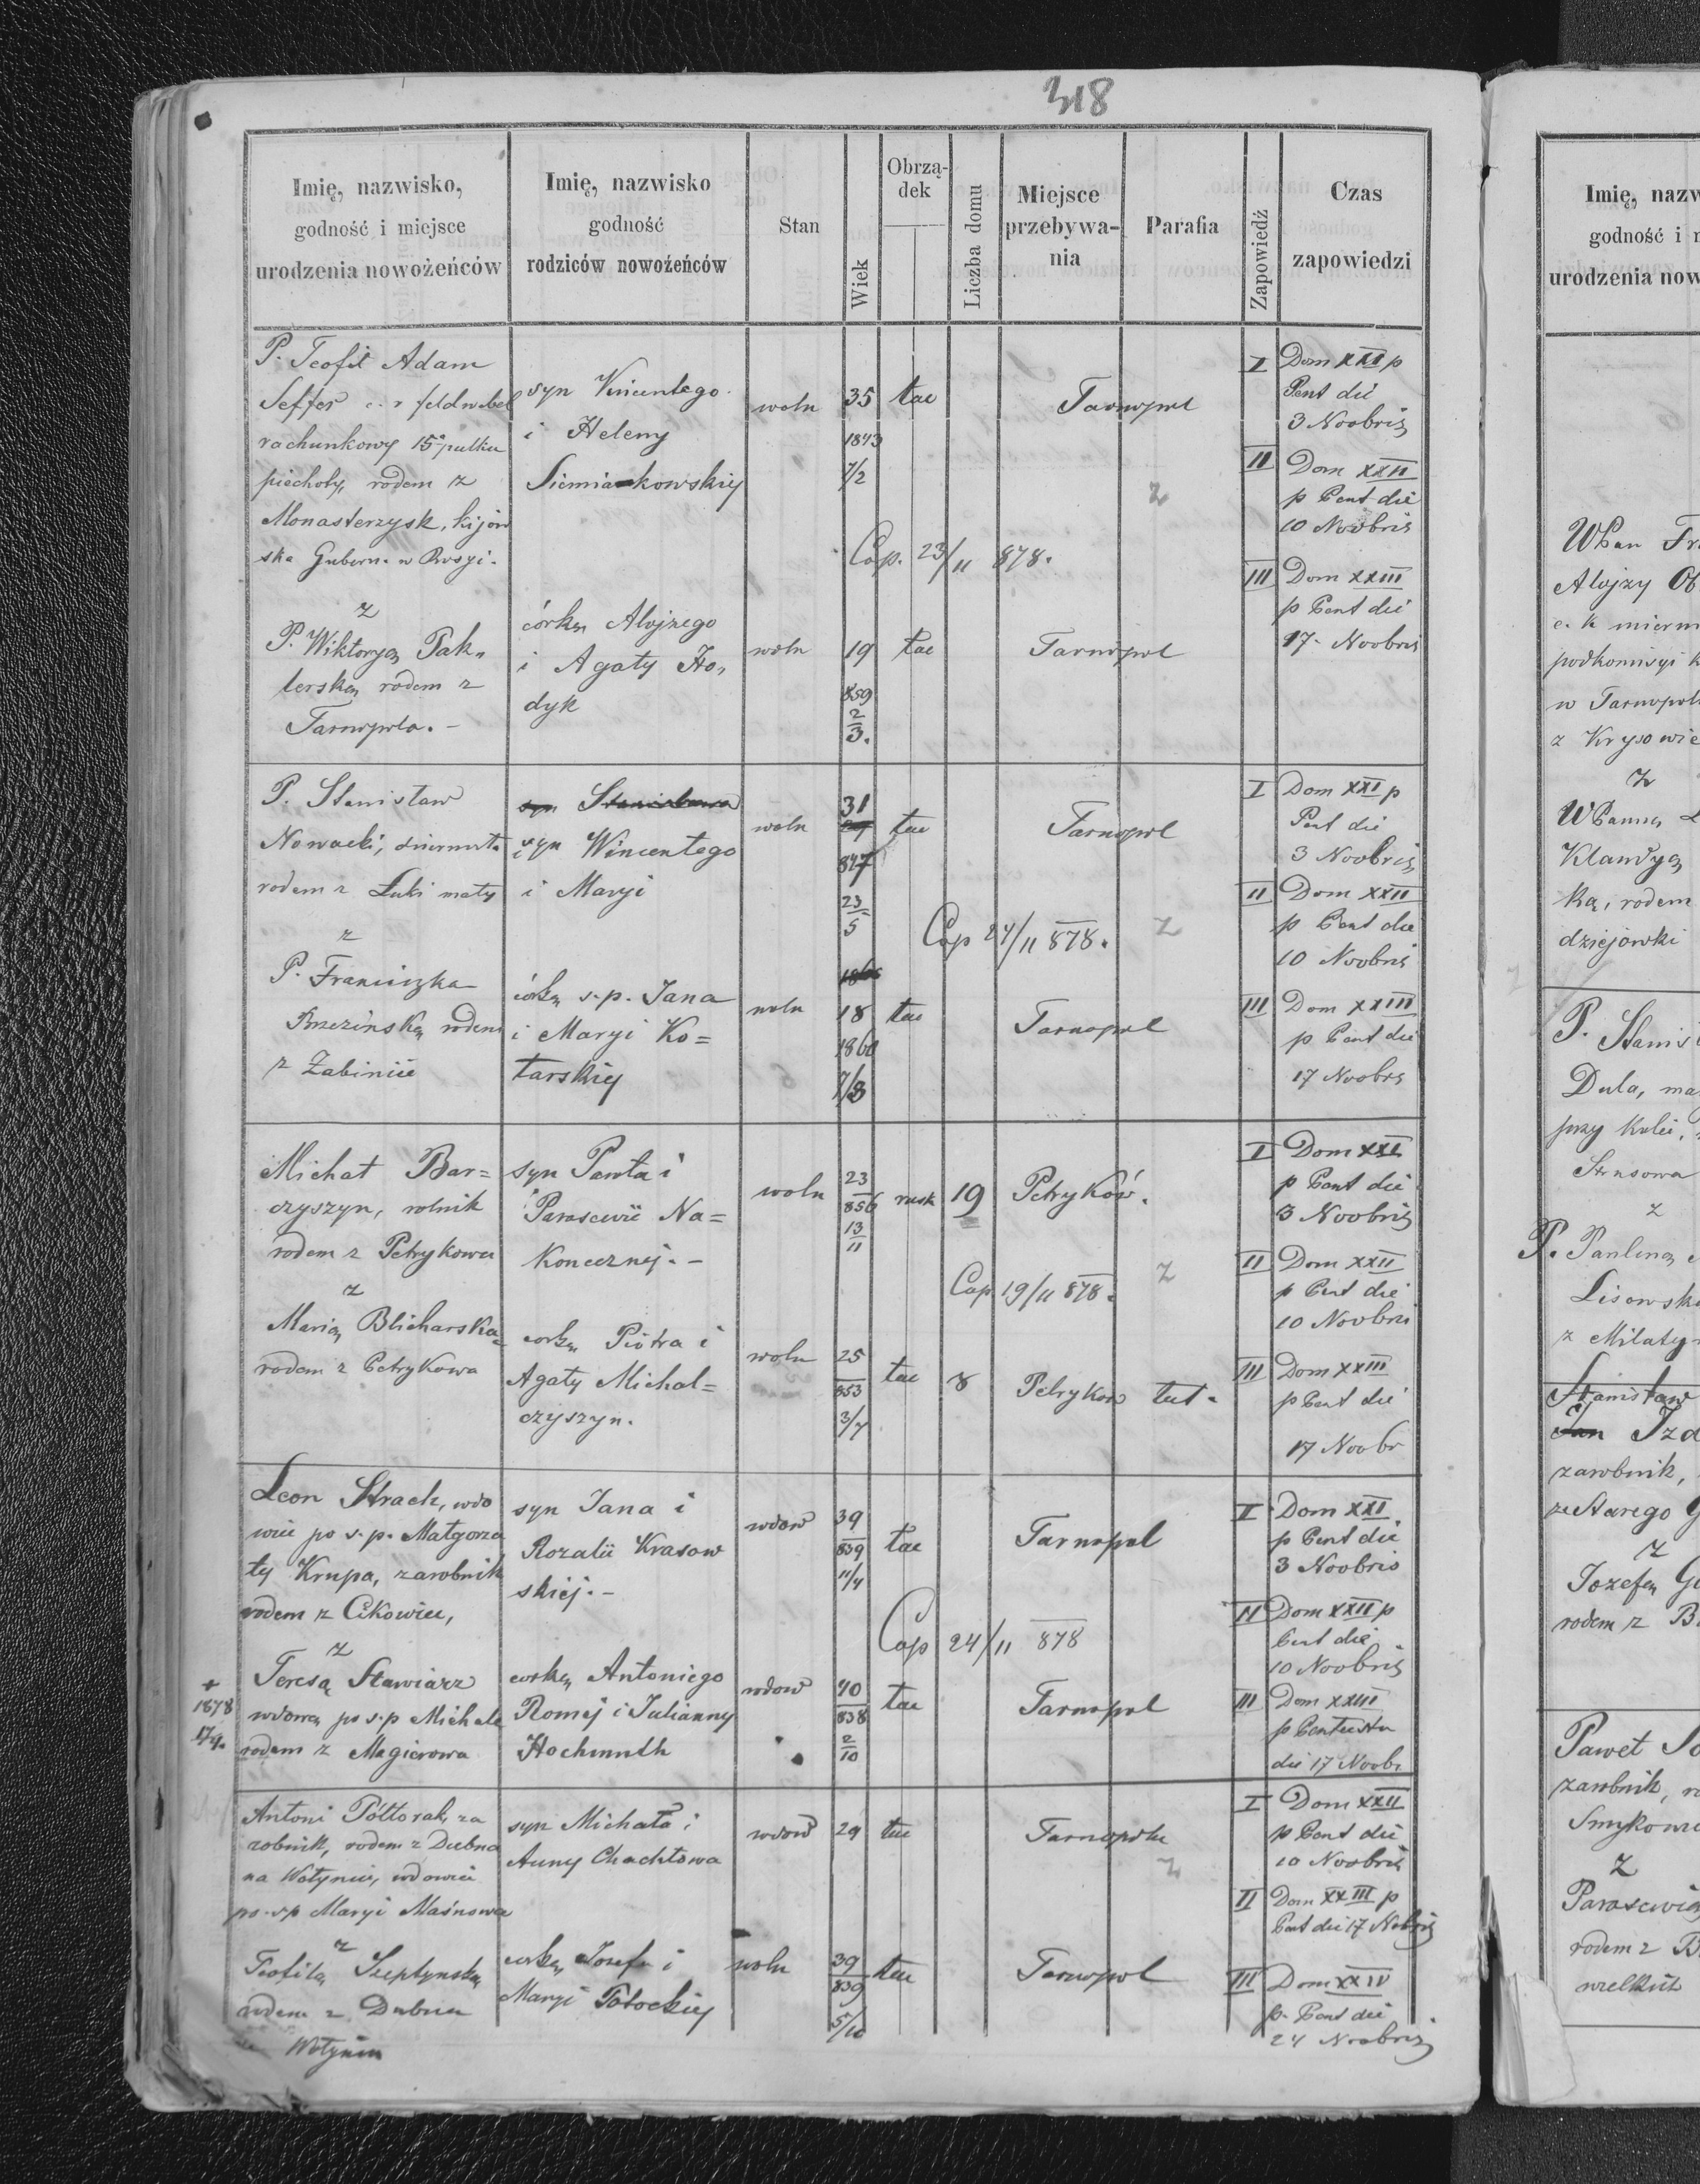 318
Imię, nazwisko,
godność i miejsce
urodzenia nowożeńców
Imię, nazwisko
godność
rodziców nowożeńców
Stan
Wiek
Obrzą-
dek
Liczba domu
Miejsce
przebywa-
nia
Parafia
Zapowiedź
Czas
zapowiedzi
P. Teofil Adam
Seffer feldwebel
rachunkowy 15º pułku
piechoty, rodem z
Monasterzysk, kijow
ska Gubern. w Rosyi.
syn Vincentego
i Heleny
Siemiankowskiej
woln
35
1843
7/2
tac
Tarnopol
I Dom XXI p
Pent die
3 Novbris
II Dom XXII
p Pent die
10 Novbris
III Dom XXIII
p Pent die
17. Novbris
Cop. 23/11 878.
z
z
P. Wiktoryą Pak-
lerską rodem z
Tarnopola. –
córką Alojzego
i Agaty Ho-
dyk
woln
19
859
2
3.
tac
Tarnopol
P. Stanisław
Nowacki,
rodem z Łuki mały
syn Stanisława
syn Wincentego
i Maryi
woln
31
847
23
5
tac
Tarnopol
I Dom XXI p
Pent die
3 Novbris
II Dom XXII
p Pent die
10 Novbris
III Dom XXIII
p Pent die
17 Novbrs
Cop 24/11 878.
z
z
P. Franciszka
Brzezińską rodem
z Żabiniec
córką s.p. Jana
i Maryi Ko=
tarskiej
woln
18
1860
7/3
tac
Tarnopol
Michał Bar=
czyszyn, rolnik
rodem z Petrykowa
syn Pawła i
Parascevii Na=
Konecznej. –
woln
23
856
13
11
rusk
19
Petryków.
I Dom XXI
p Pent die
3 Novbris
II Dom XXII
p Pent die
10 Novbris
III Dom XXIII
p Pent die
17 Novbr
Cop 19/11 878.
z
z
Marią Blicharska=
rodem z Petrykowa
corką Piotra i
Agaty Michal=
czyszyn.
woln
25
853
3/7
tac
8
Petrykow
tut.
Leon Strach, wdo
wiec po s.p. Małgorza
ty Krupa, zarobnik
rodem z Cikowiec,
syn Jana i
Rozalii Krasow
skiej. –
wdow
39
839
11/4
tac
Tarnopol
I Dom XXI
p Pent die
3 Novbris
II Dom XXII p
Pent die
10 Novbris
III Dom XXIII
p Pentecstn
die 17 Novbr
Cop 24/11 878
z
+
1878
Teresą Stawiarz
wdową po s.p Michale
rodem z Magierowa
corką Antoniego
Romej i Julianny
Hochmuth
wdow
40
838
2
10
tac
Tarnopol
Antoni Półtorak, za
robnik, rodem z Dubna
na Wołyniu, wdowiec
po s.p Maryi Maśnowa
syn Michała i
Anny Chachłowa
wdow
29
tac
Tarnopolu
I Dom XXII
p Pent die
10 Novbris
II Dom XXIII p
Pent die 17 Novbris
III Dom XXIV
p. Pent die
24 Novbris
z
z
Teofilą Szeptynską
rodem z Dubna
Wołyniu
corką Josefa i
Maryi Potockiej
woln
39
839
5/10
tac
Tarnopol
Imię, nazw
godność i m
urodzenia now
WPan Fr
Alojzy Ob
c. k mierni
podkomisyi k
w Tarnopol
z Krysowic
z
WPanną
Klaudyą
ką, rodem
dziejowki
P. Stanis
Dula, ma
przy kolei,
Strusowa
z
P. Pauliną
Lisowsk
z Milatyn
Stanisław
Jan Izd
zarobnik,
ze Starego G
z
Jozefą Gu
rodem z B
Paweł So
zarobnik, r
Smykow
z
Parascewią
rodem z B
wielkich